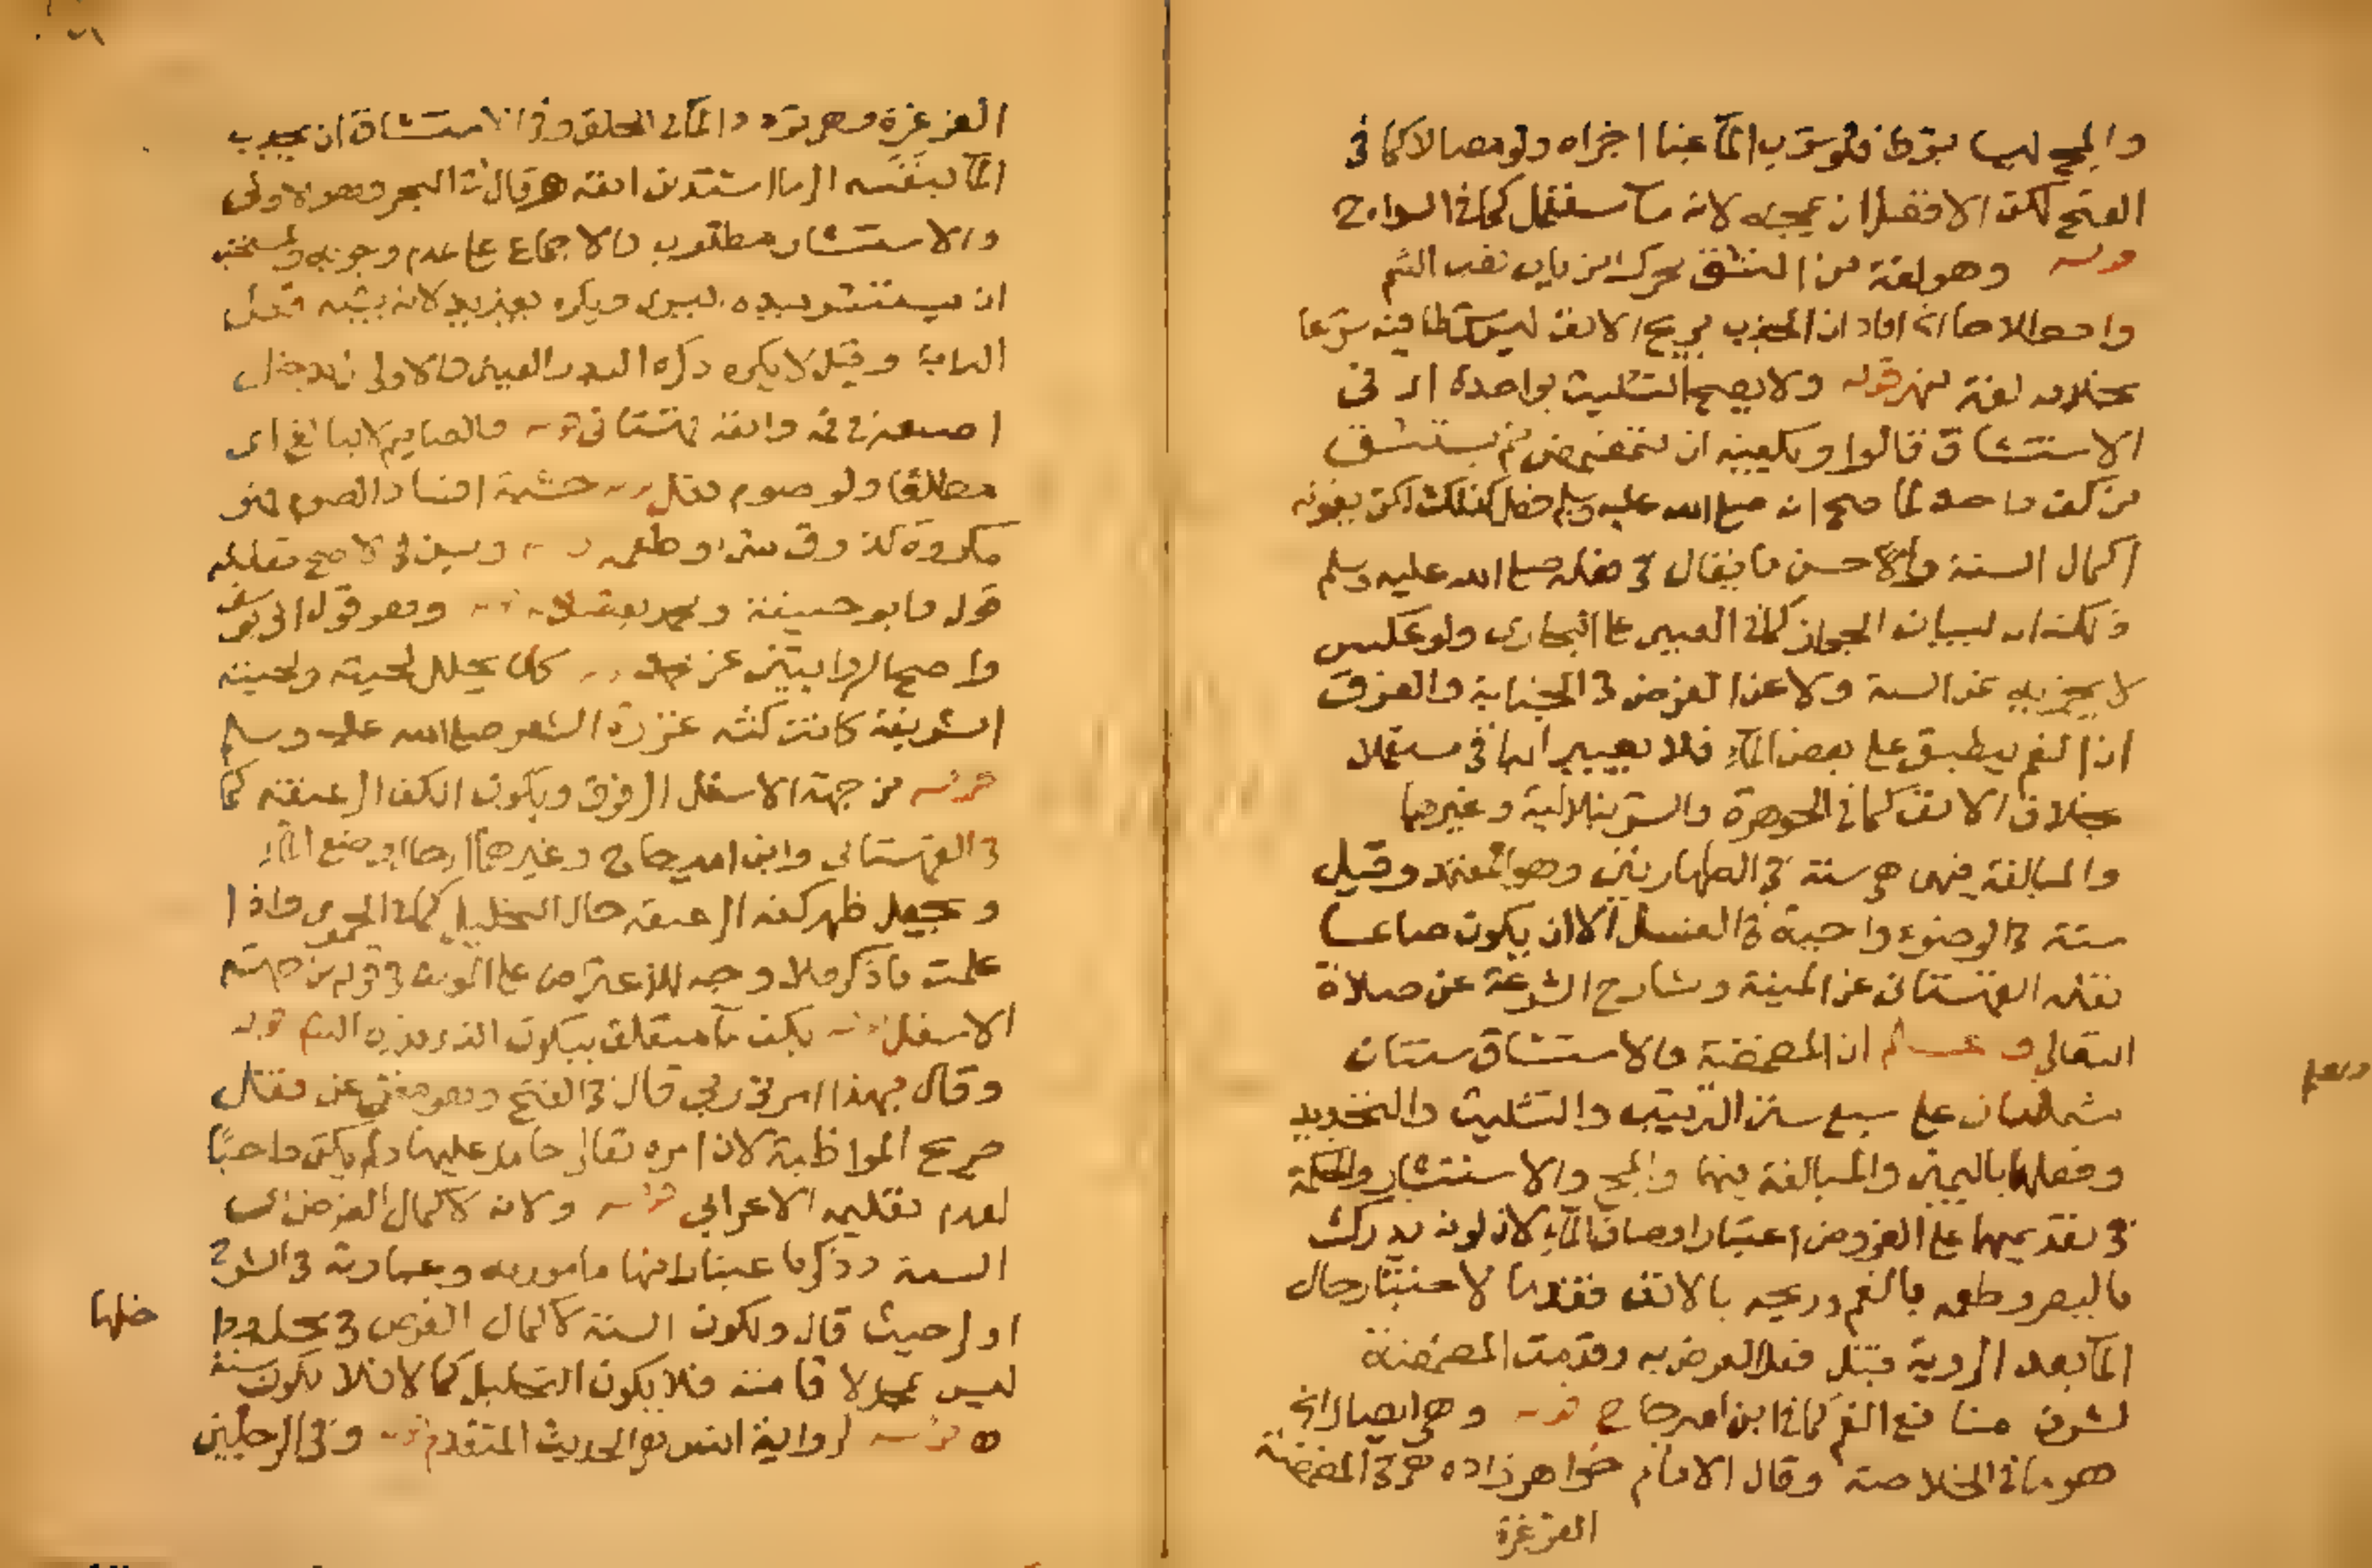 والمج ليس بشرط فلو شرب الماء عبا اجزاه ولو مصا لا كما في
الفتح لكن الافضل ان يمجه لانه ماء مستعمل كما في السراج
قوله وهو لغة من النشق محركا من باب تعب الشم
واصطلاحا افاد ان الجذب بريح الانف ليس شرطا فيه شرعا
بخلافه لغة نهر قوله ولا يصح التثليث بواحدة اي في
الاستنشاق قالوا ويكفيه ان يتمضمض ثم يستنشق
من كف واحد لما صح انه صلى الله عليه وسلم فعل كذلك لكن يفوته
اكمال السنة والاحسن ما يقال في فعله صلى الله عليه وسلم
ذلك انه لبيان الجواز كما في العيني على البخاري ولو عكس
لا يجزيه عن السنة ولا عن الفرض في الجنابة والفرق
ان الفم ينطبق على بعض الماء فلا يصير الباقي مستعملا
بخلاف الانف كما في الجوهرة والشرنبلالية وغيرهما
والمبالغة فيهما هي سنة في الطهارتين وهو المعتمد وقيل
سنة في الوضوء واجبة في الغسل الا ان يكون صائما
نقله القهستاني عن المنية وشارح الشرعة عن صلاة
البقالي واعلم ان المضمضة والاستنشاق سنتان
مشتملتان على سبع سنن الترتيب والتثليث والتجديد
وفعلهما باليمين والمبالغة فيهما والمج والاستنثار والحكمة
في تقديمهما على الفروض اعتبار اوصاف الماء لان لونه يدرك
بالبصر وطعمه بالفم وريحه بالانف فقدما لاعتبار حال
الماء بعد الروية قبل فعل الفرض به وقدمت المضمضة
لشرف منافع الفم كما في ابن امير حاج قوله وهي ايصال الخ
هو ما في الخلاصة وقال الامام خواهر زاده هي في المضمضة
الغرغرة
الغرغرة وهي تردد الماء في الحلق وفي الاستنشاق ان يجذب
الماء بنفسه الى ما اشتد من انفه قال في البحر وهو الاولى
والاستنثار مطلوب والاجماع على عدم وجوبه والمستحب
ان يستنثر بيده اليسرى ويكره بغير يد لانه يشبه فعل
الدابة وقيل لا يكره ذكره البدر العيني والاولى ان يدخل
اصبعه في فمه وانفه قهستاني قوله والصايم لا يبالغ اي
مطلقا ولو صوم نفل قوله خشية افساد الصوم فهو
مكروه كذوق شيء وطعمه قوله وسنن في الاصح مقابله
قول ابو حنيفة ومحمد بفضله قوله وهو قول ابي يوسف
واصح الروايتين عن محمد قوله كان يخلل لحيته ولحيته
الشريفة كانت كثة غزيرة الشعر صلى الله عليه وسلم
قوله من جهة الاسفل الى فوق ويكون الكف الى عنقه كما
في القهستاني وابن امير حاج وغيرهما اي حال وضع الماء
ويجعل ظهر كفه الى عنقه حال التخليل كما في الحموي واذا
علمت ما ذكر فلا وجه للاعتراض على المولف في قوله من جهة
الاسفل قوله بكف ماء متعلق بيكون الذي قدره الشم قوله
وقال بهذا امرني ربي قال في الفتح وهو مغن عن نقل
صريح المواظبة لان امره تعالى حامل عليها ولم يكن واجبا
لعدم تعليمه الاعرابي قوله ولانه لاكمال الفرض اي
السنة وذكر باعتبار انها مامور به وعبارته في الشرح
اولى حيث قال ولكون السنة لاكمال الفرض في محله وداخلها
ليس بمحل لاقامته فلا يكون التخليل كمالا فلا يكون سنة
قوله لرواية انس هو الحديث المتقدم قوله وفي الرجلين